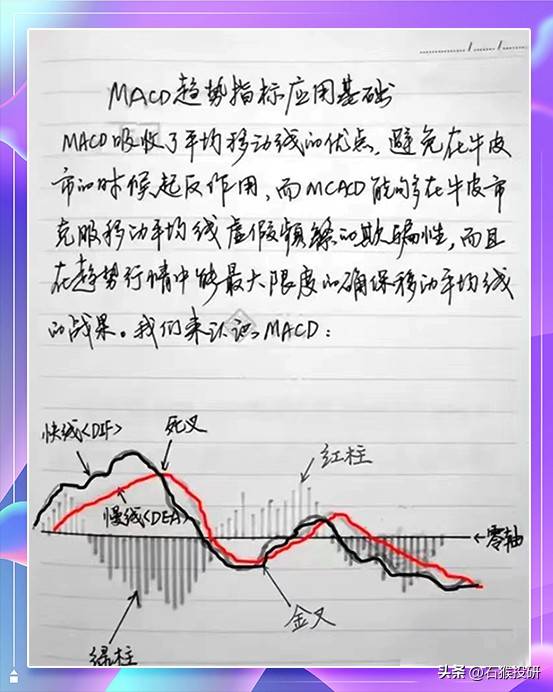 MACD趋势指标应用基础
MACD吸收了平均移动线的优点,避免在牛皮
市的时候起反作用,而MCACD能够在牛皮市
克服移动平均线虚假频繁的欺骗性,而且
在趋势行情中能最大限度的确保移动平均线
的战果。我们来认识MACD:
快线<DIF>
死叉
红柱
慢线<DEA>
←零轴
金叉
绿柱
头条@石猴投研